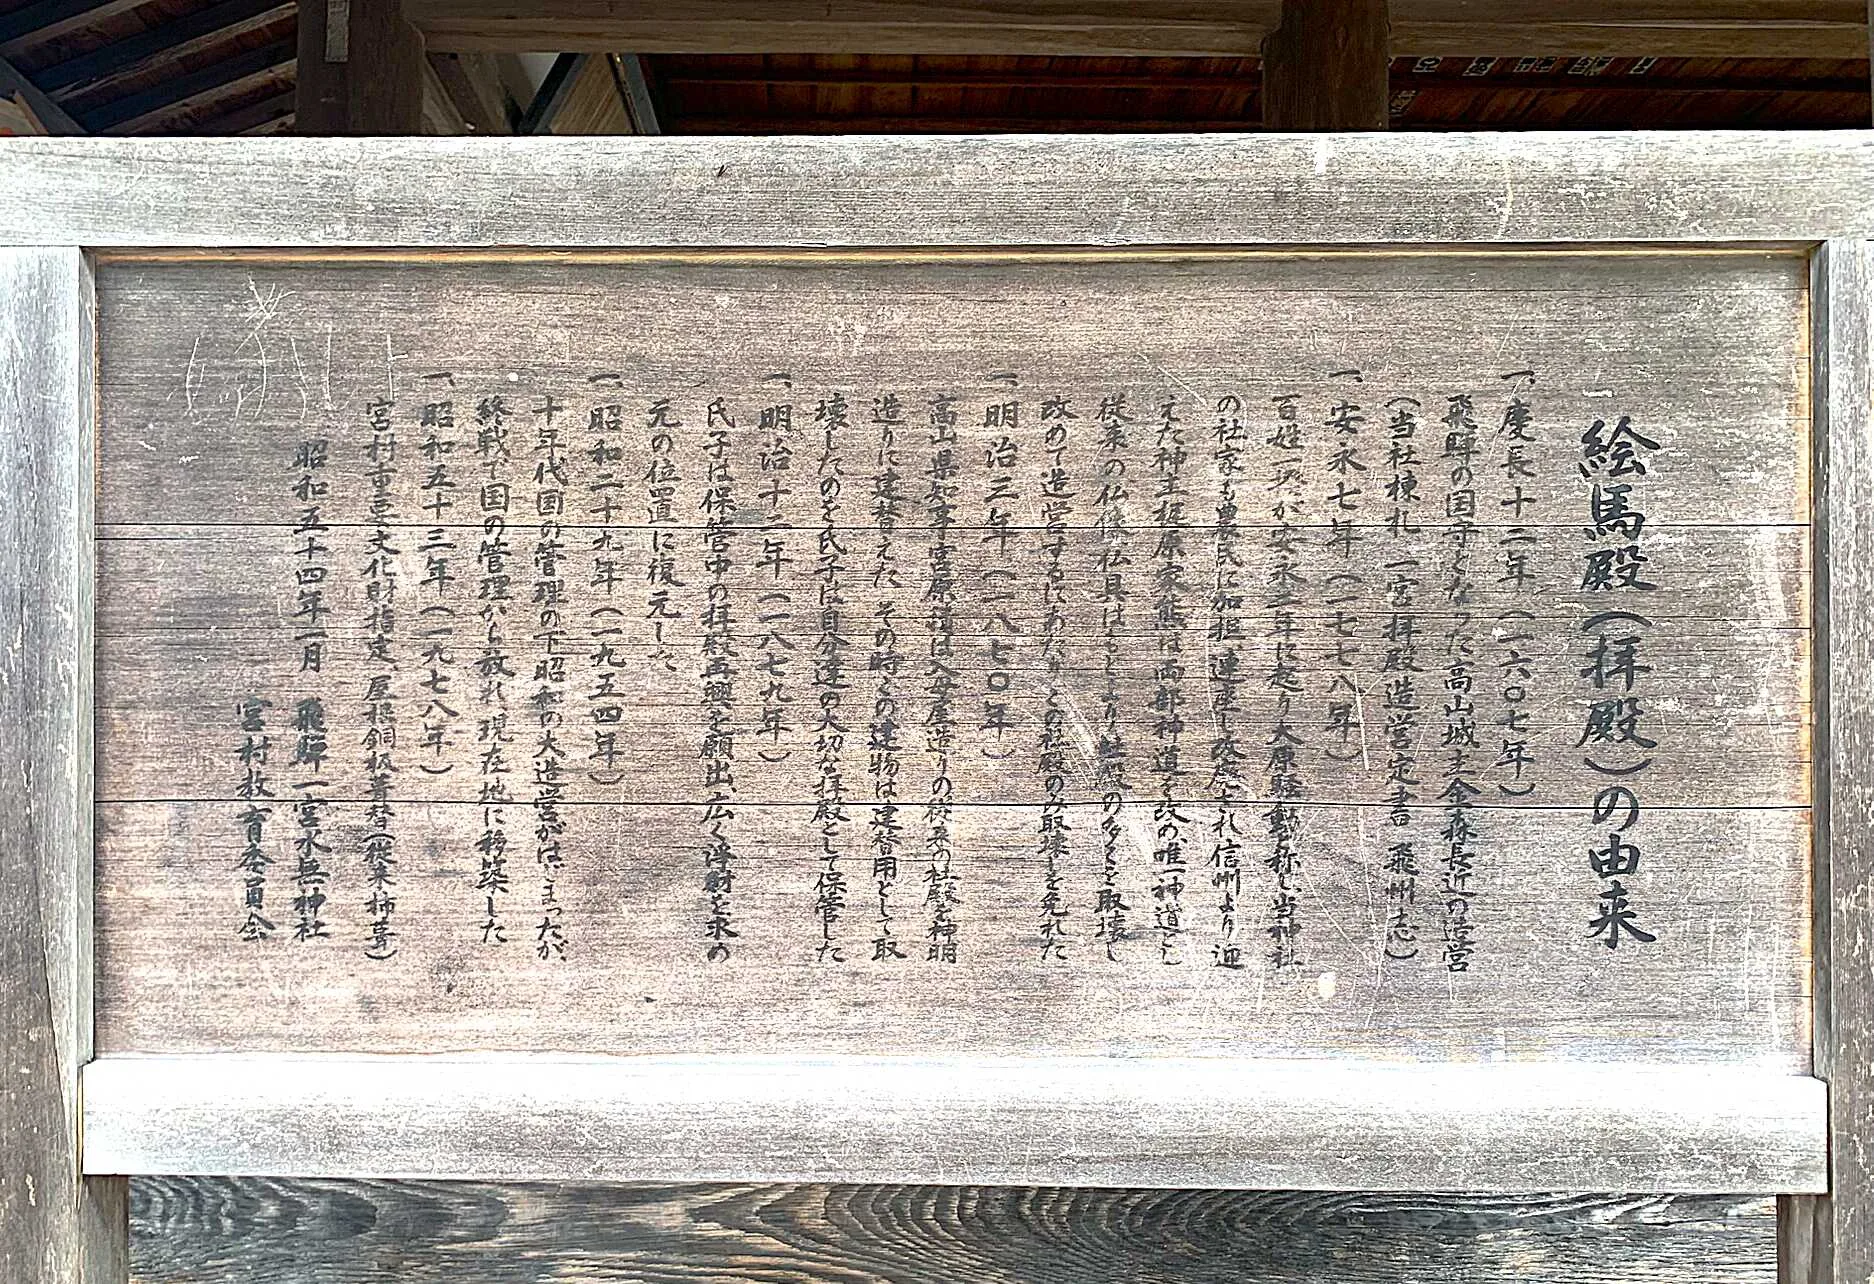 絵馬殿(拝殿)の由来
一、慶長十二年(一六〇七年)
飛騨の国守となった高山城主金森長近の造営
(当社棟札 一宮拝殿造営定書 飛州志)
一、安永七年(一七七八年)
百姓一揆が安永二年に起り大原騒動と称し、当神社
の社家も農民に加担、連座し改廃され信州より迎
えた神主梶原家熊は両部神道を改め、唯一神道とし
従来の仏像仏具はもとより社殿の多くを取壊し
改めて造営するにあたりこの社殿のみ取壊しを免れた
一、明治三年(一八七〇年)
高山県知事宮原積は入母屋造りの従来の社殿を神明
造りに建替えた その時この建物は建替用として取
壊したのを氏子は自分達の大切な拝殿として保管した
一、明治十二年(一八七九年)
氏子は保管中の拝殿再興を願出、広く浄財を求め
元の位置に復元した
一、昭和二十九年(一九五四年)
十年代国の管理の下昭和の大造営がはじまったが、
終戦で国の管理から放れ、現在地に移築した
一、昭和五十三年(一九七八年)
宮村重要文化財指定、屋根銅板葺替(従来柿葺)
昭和五十四年一月 飛騨一宮水無神社
宮村教育委員会